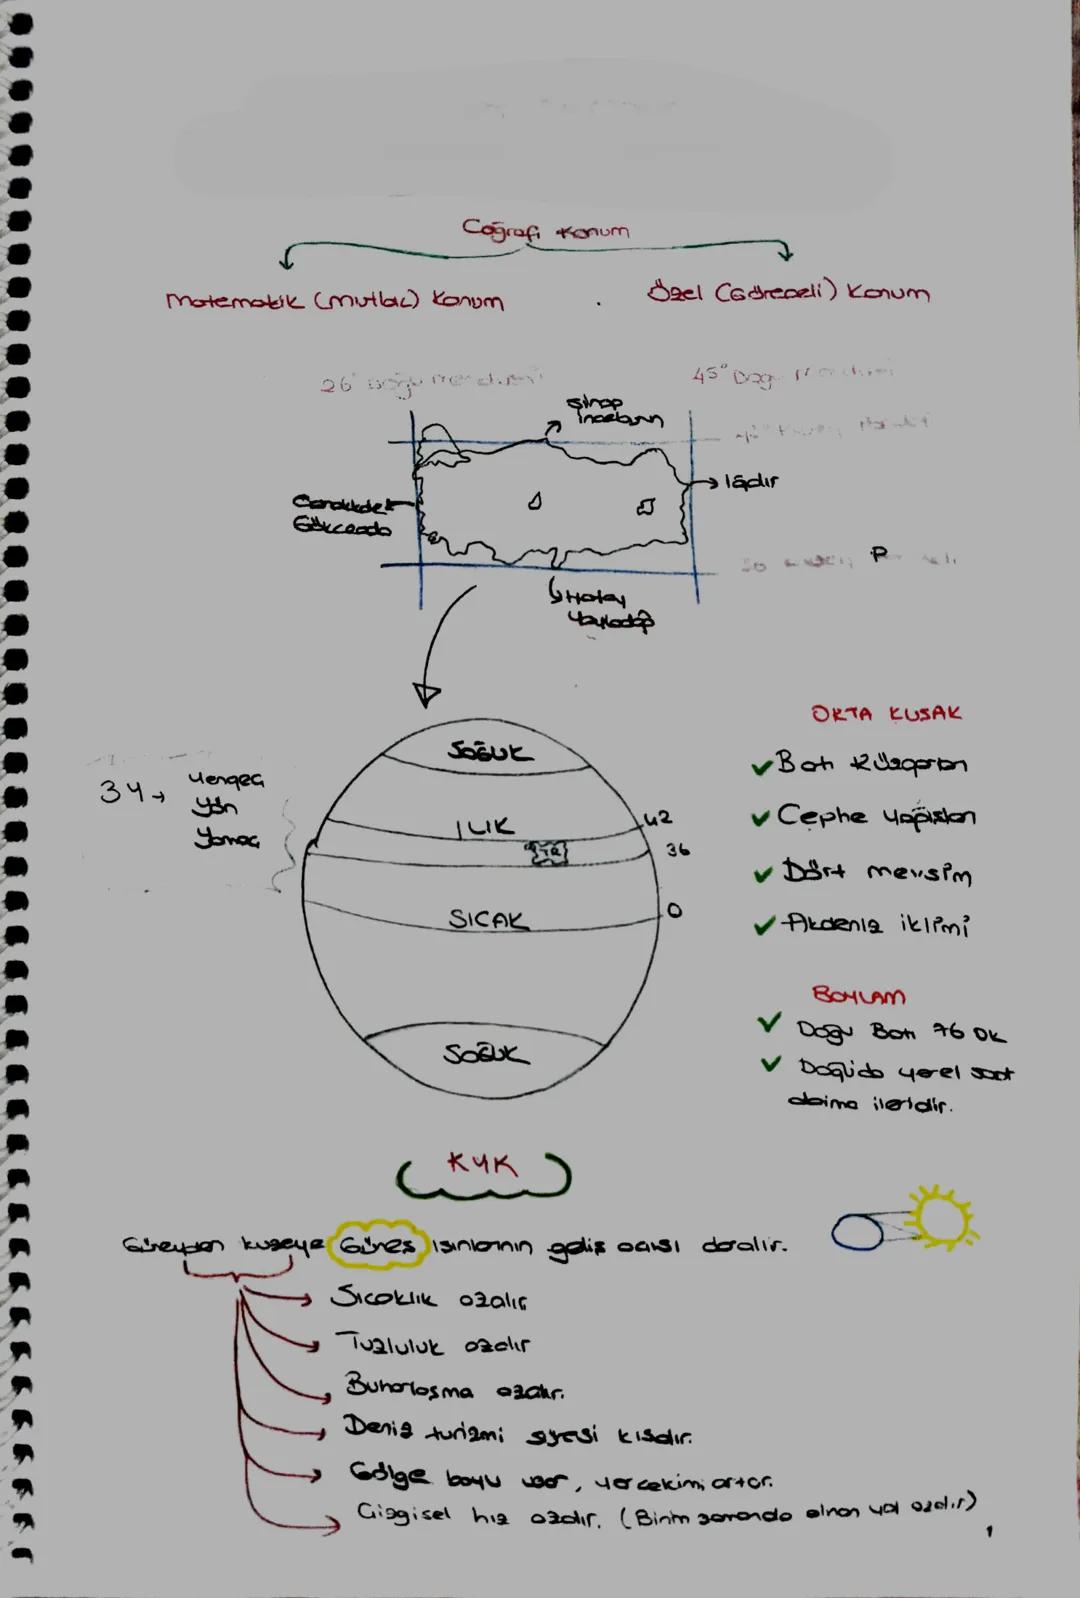 Coğrafi Konum
Matematik (Mutlak) Konum
Özel (Göreceli) Konum
26° Doğu Meridyeni
45° Doğu Meridyeni
Sinop
İnceburun
Iğdır
Çanakkale
Gökçeada
36
P
Hatay
Yayladağı
ORTA KUŞAK
SOĞUK
✓ Batı Rüzgarları
3Y → Yengeç
Yön
Yamaç
ILIK
42
✓ Cephe yağışları
TR
36
✓ Dört mevsim
SICAK
0
✓ Akdeniz iklimi
BOYLAM
✓ Doğu Batı 76 Dk
SOĞUK
✓ Doğuda yerel saat
daima ileridir.
KYK
Güneyden kuzeye Güneş ışınlarının geliş açısı daralır.
→ Sıcaklık azalır
→ Tuzluluk azalır
→ Buharlaşma azalır.
→ Deniz turizmi süresi kısalır.
→ Gölge boyu uzar, yerçekimi artar.
→ Çizgisel hız azalır. (Birim zamanda alınan yol azalır)
1